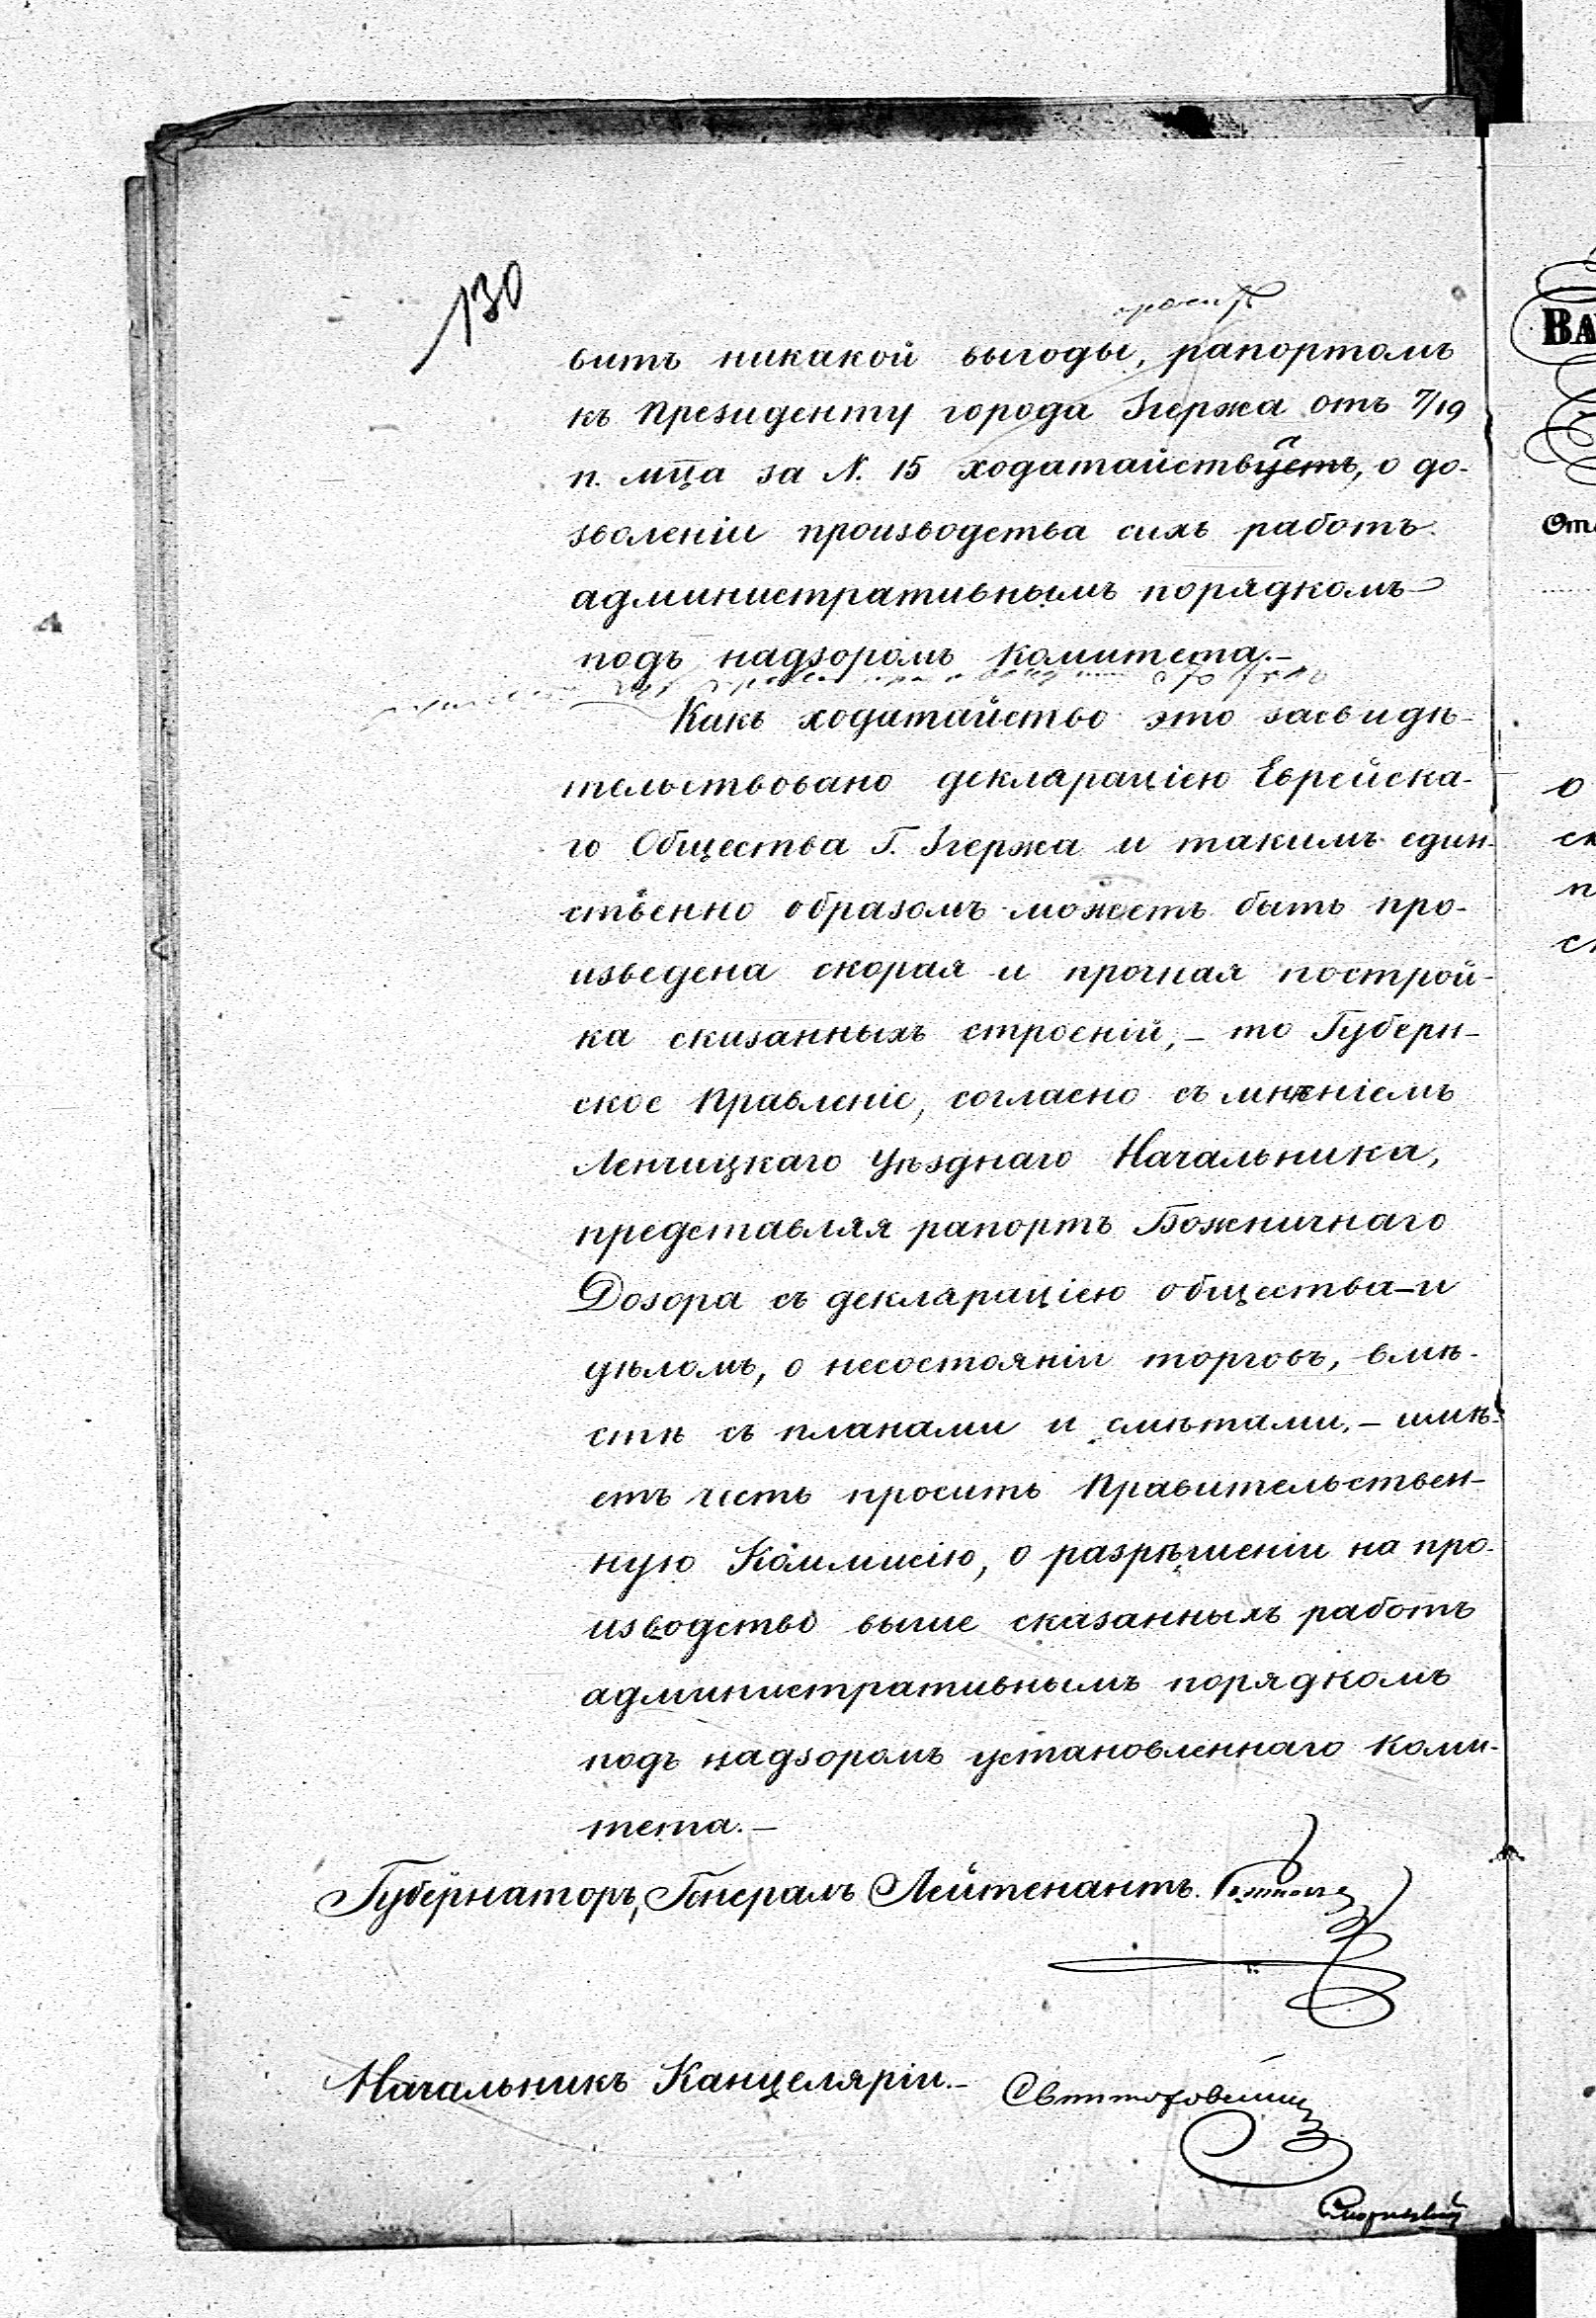 130
вить никакой выгоды, рапортомъ
къ Президенту города Згержа отъ 7/19
п. мца за N. 15 ходатайствуетъ, о до-
зволеніи производства сихъ работъ
административнымъ порядкомъ
подъ надзоромъ Комитета.-
Какъ ходатайство это засвидѣ-
тельствовано декляраціею Еврейска-
го Общества Г. Згержа и такимъ един-
ственно образомъ можетъ быть про-
изведена скорая и прочная построй-
ка сказанныхъ строеній,- то Губерн-
ское Правленіе, согласно съ мнѣніемъ
Ленчицкаго Уѣзднаго Начальника,
представляя рапортъ Божничнаго
Дозора съ декляраціею общества-и
дѣломъ, о несостояніи торговъ, -вмѣ-
стѣ съ планами и смѣтами,- имѣ-
етъ честь просить Правительствен-
ную Коммисію, о разрѣшеніи на про-
изводство выше сказанныхъ работъ
административнымъ порядкомъ
подъ надзоромъ установленнаго коми-
тета.-
Губернаторъ, Генералъ Лейтенантъ.
Начальникъ Канцеляріи.-
ВА
От
о
ск
п